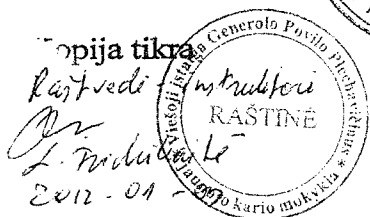 opija tikra
Raštvedė - instruktorė
2012 - 01 -
Viešoji įstaiga Generolo Povilo Plechavičiaus
jaunojo kario mokykla *
RAŠTINĖ